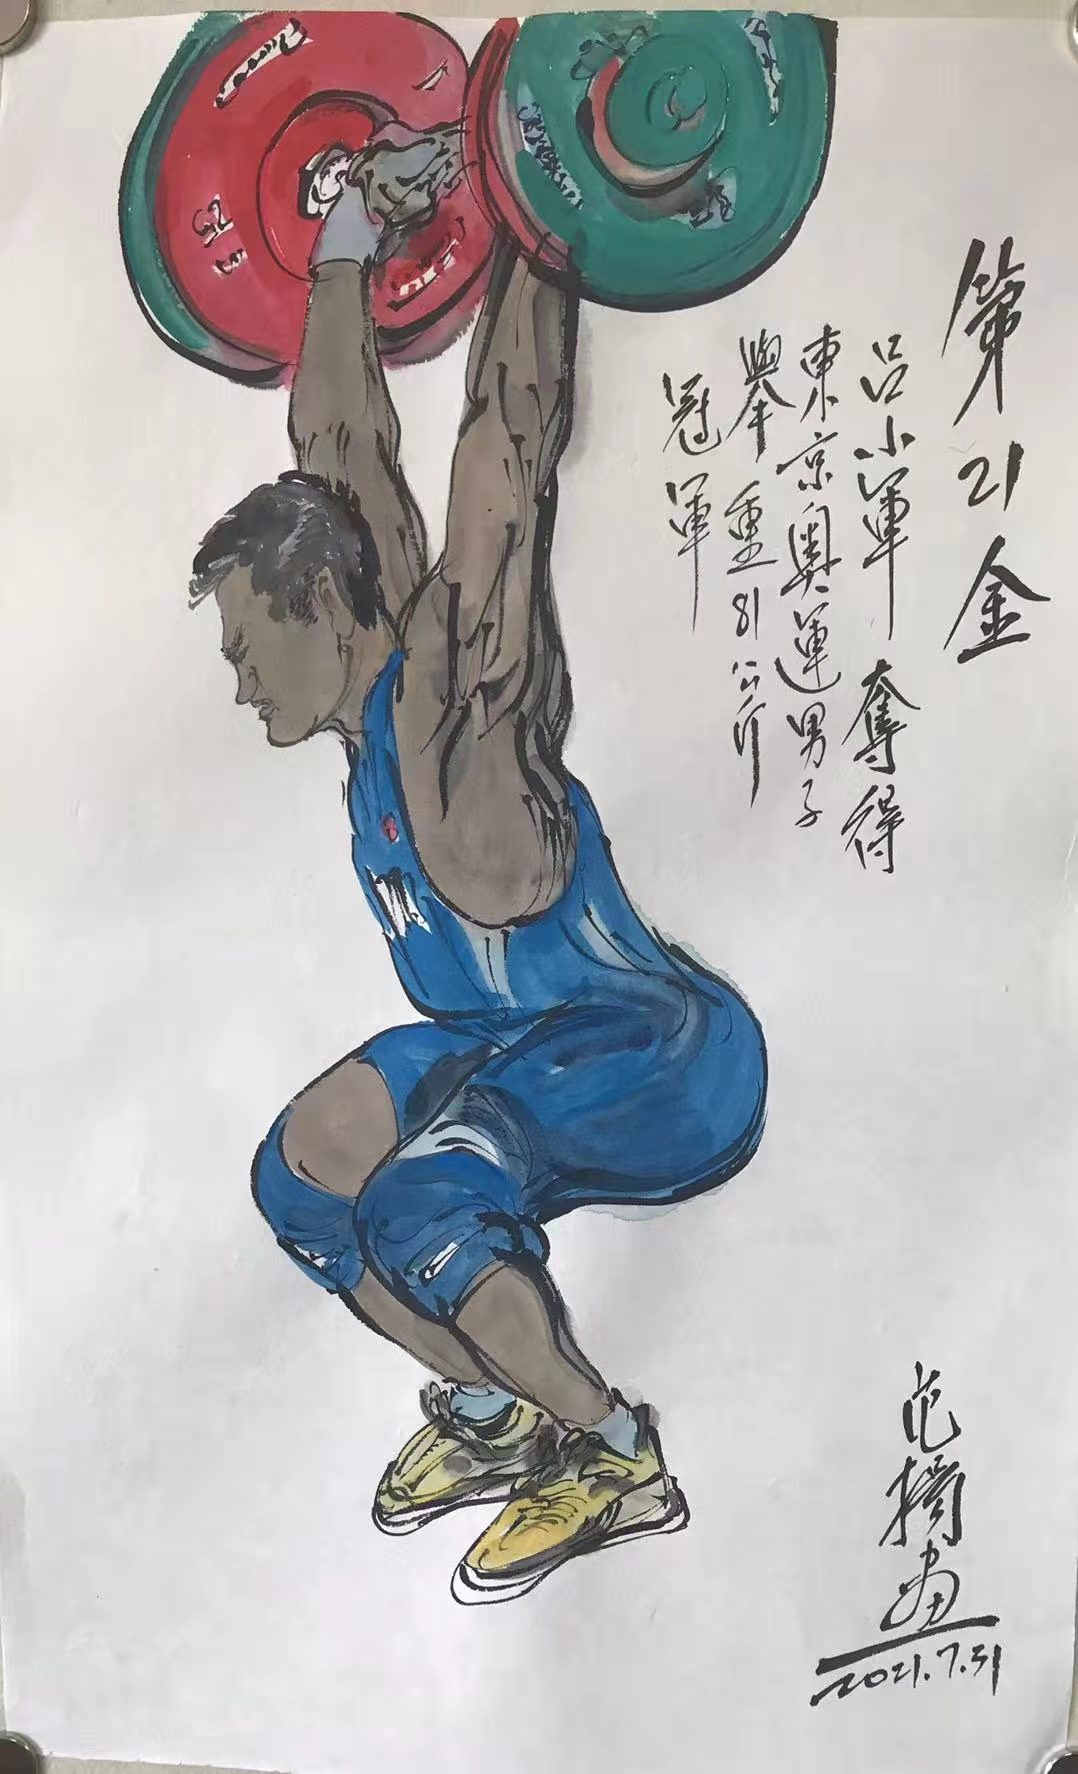 第21金
呂小軍 奪得
東京奧運男子
舉重81公斤
冠軍
范
画
2021.7.31
25